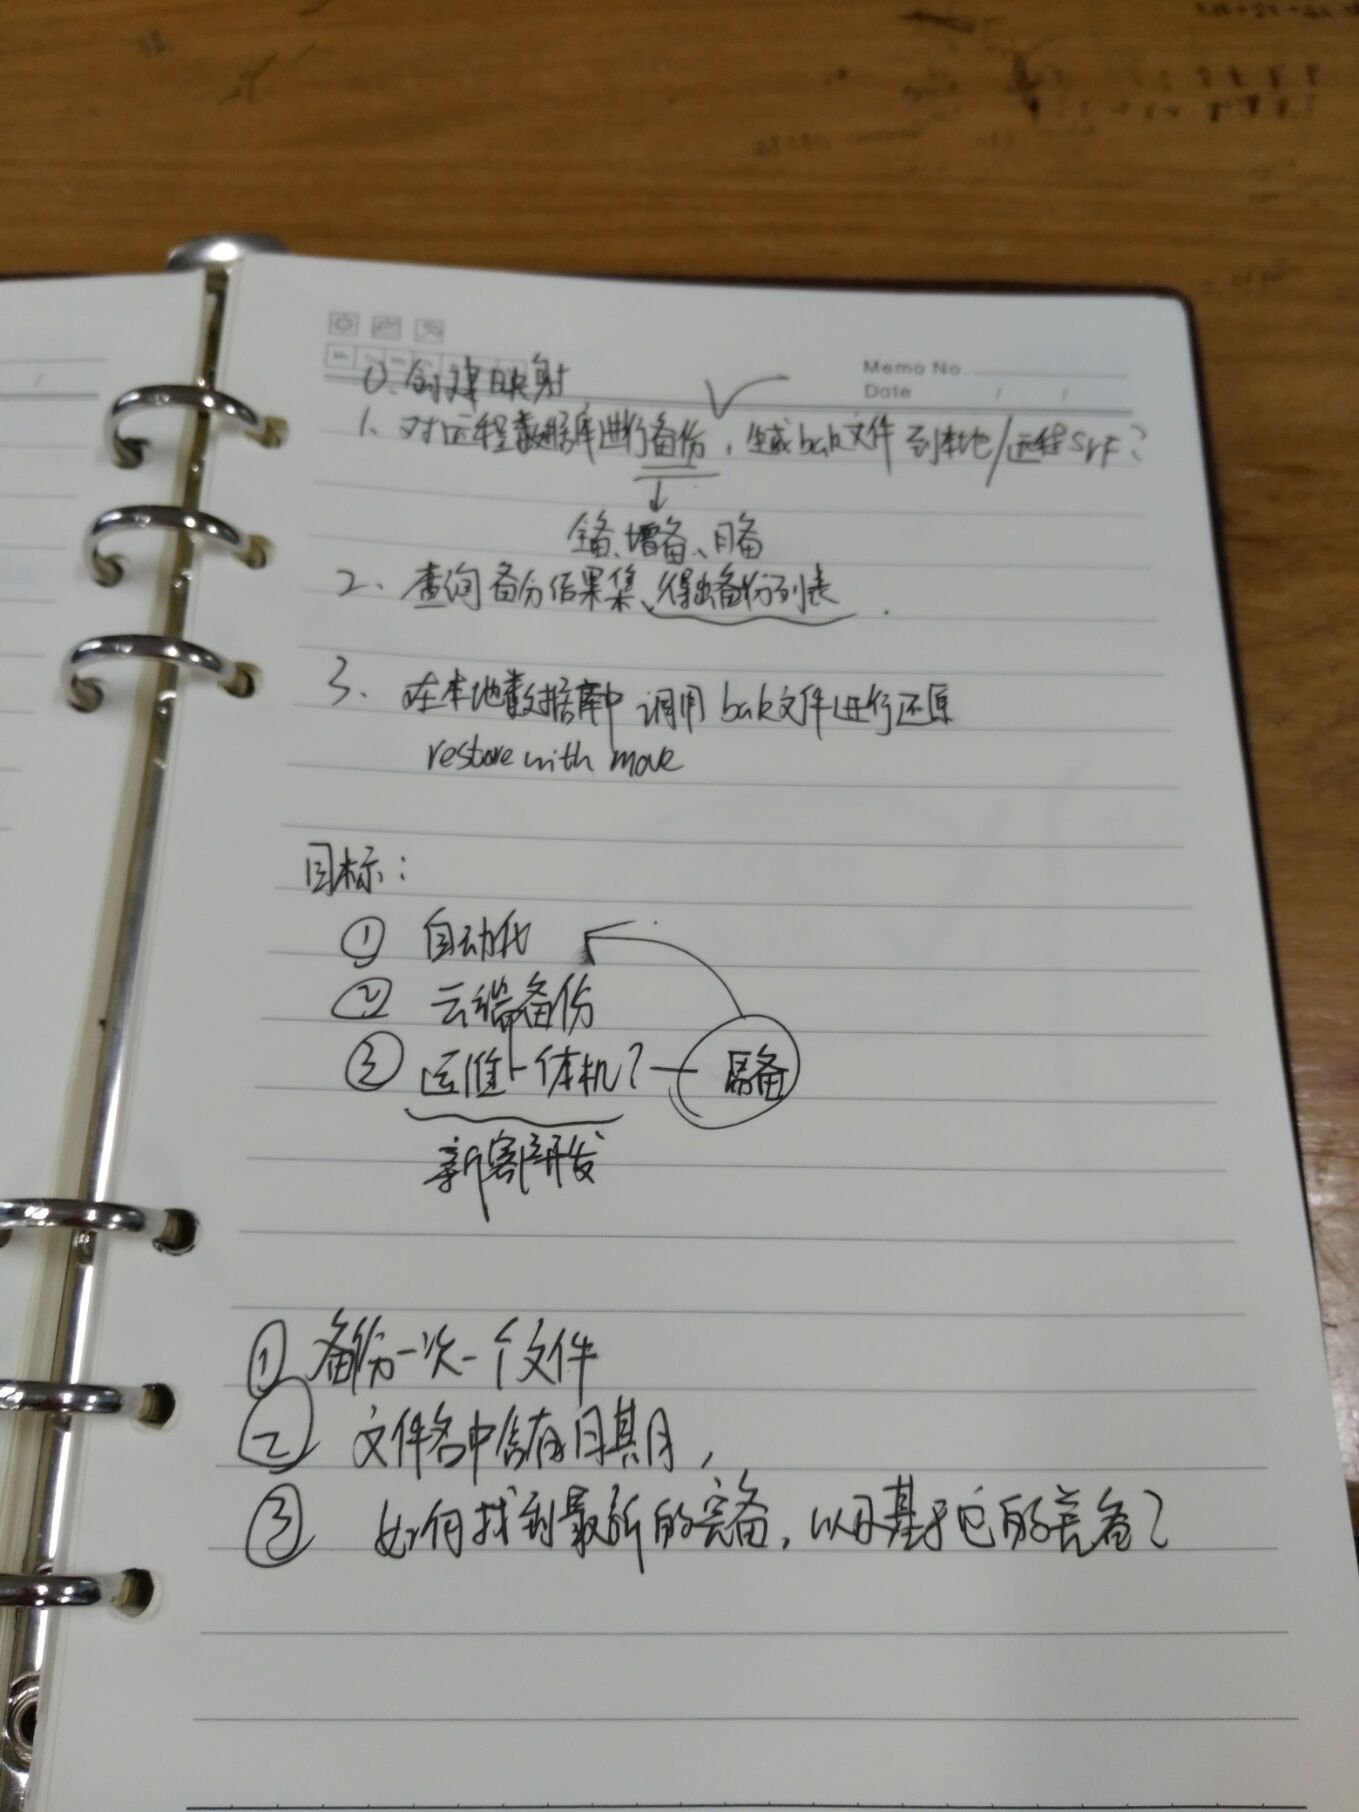 Memo No.
Date / /
0. 创建映射
1、对远程数据库进行备份，生成bak文件到本地/远程SVF?
全备、增备、日备
2、查询备份结果集、得出备份列表.
3、在本地数据库中调用bak文件进行还原
restore with move
目标：
① 自动化
② 云端备份
③ 运维一体机?
备
新 开发
① 备份一次一个文件
② 文件名中含有日期，
③ 如何找到最新的完备，以及基于它的差备?